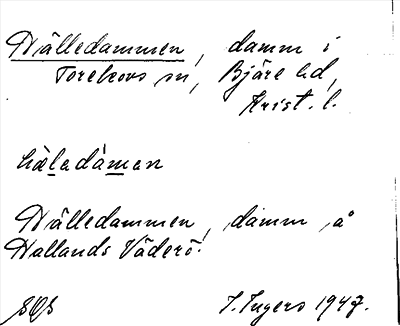 Hälledammen, damm i
Torekovs sn, Bjäre hd,
Krist. l.
häladámen
Hälledammen, damm å
Hallands Väderö.
I. Ingers 1947.